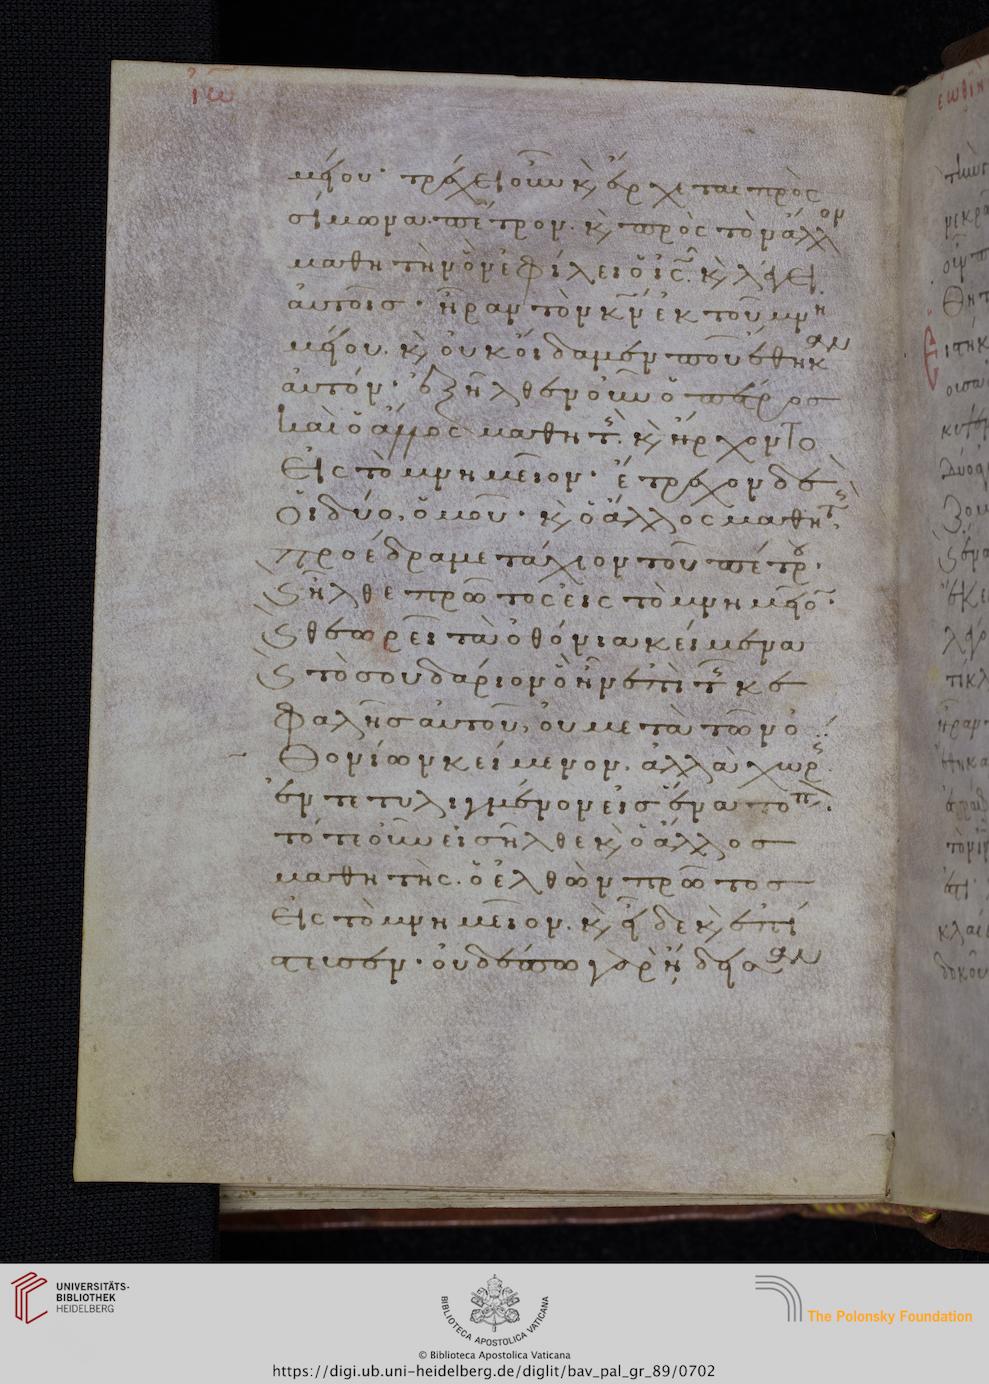 ἰω
μείου· τρέχει οὖν κ, ἔρχεται πρὸς
σίμωνα πέτρον. κ, πρὸς τὸν ἄλλον
μαθητὴν ὃν ἐφίλει ὁ ις. κ, λέγει
αὐτοῖσ· ἦραν τὸν κν ἐκ τοῦ μνη
μείου. κ, οὐκ οἴδαμεν ποῦ ἔθηκαν
αὐτόν· ἐξῆλθεν οὖν ὁ πέτροσ
καὶ ὁ ἄλλος μαθητής. κ, ἤρχοντο
εἰς τὸ μνημεῖον· ἔτρεχον δὲ
οἱ δύο, ὁμοῦ· κ, ὁ ἄλλος μαθητὴς
προέδραμε τάχιον τοῦ πέτρου.
ϗ ἦλθε πρῶτος εἰς τὸ μνημεῖον·
ϗ θεωρεῖ τὰ ὀθόνια κείμενα
ϗ τὸ σουδάριον ὃ ἦν ἐπὶ τῆς κε
φαλῆσ αὐτοῦ, οὐ μετὰ τῶν ὀ
θονίων κείμενον. ἀλλὰ χωρὶς
ἐντετυλιγμένον εἰσ ἕνα τόπον.
τότε οὖν εἰσῆλθε κ, ὁ ἄλλοσ
μαθητὴς. ὁ ἐλθὼν πρῶτοσ
εἰς τὸ μνημεῖον. κ, εἶδε κ, ἐπί
στευσεν· οὐδέπω γὰρ ᾔδεισαν
UNIVERSITÄTS-
BIBLIOTHEK
HEIDELBERG
BIBLIOTECA APOSTOLICA VATICANA
The Polonsky Foundation
© Biblioteca Apostolica Vaticana
https://digi.ub.uni-heidelberg.de/diglit/bav_pal_gr_89/0702